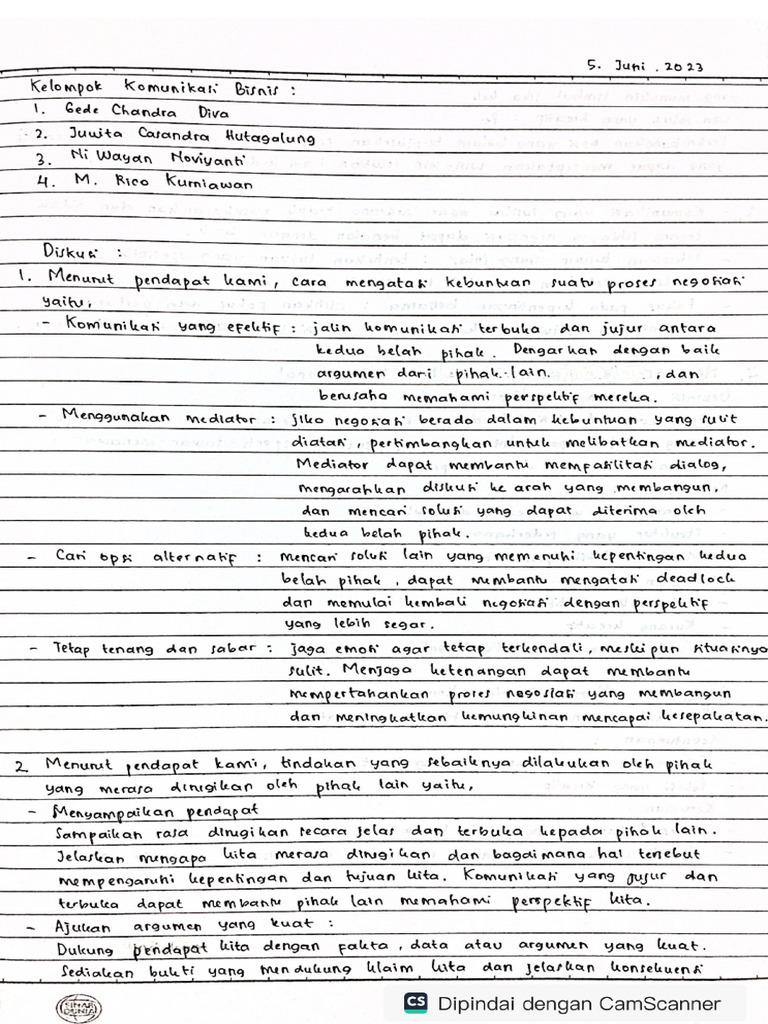 5. Juni. 2023
Kelompok Komunikasi Bisnis :
1. Gede Chandra Diva
2. Juwita Casandra Hutagalung
3. Ni Wayan Noviyanti
4. M. Rico Kurniawan
Diskusi :
1. Menurut pendapat kami, cara mengatasi kebuntuan suatu proses negosiasi
yaitu,
- Komunikasi yang efektif : jalin komunikasi terbuka dan jujur antara
kedua belah pihak. Dengarkan dengan baik
argumen dari pihak lain , dan
berusaha memahami perspektif mereka.
- Menggunakan mediator : jika negosiasi berada dalam kebuntuan yang sulit
diatasi, pertimbangkan untuk melibatkan mediator.
Mediator dapat membantu memfasilitasi dialog,
mengarahkan diskusi ke arah yang membangun,
dan mencari solusi yang dapat diterima oleh
kedua belah pihak.
- Cari opsi alternatif : mencari solusi lain yang memenuhi kepentingan kedua
belah pihak, dapat membantu mengatasi deadlock
dan memulai kembali negosiasi dengan perspektif
yang lebih segar.
- Tetap tenang dan sabar : jaga emosi agar tetap terkendali, meskipun situasinya
sulit. Menjaga ketenangan dapat membantu
mempertahankan proses negosiasi yang membangun
dan meningkatkan kemungkinan mencapai kesepakatan.
2. Menurut pendapat kami, tindakan yang sebaiknya dilakukan oleh pihak
yang merasa dirugikan oleh pihak lain yaitu,
- Menyampaikan pendapat
Sampaikan rasa dirugikan secara jelas dan terbuka kepada pihak lain.
Jelaskan mengapa kita merasa dirugikan dan bagaimana hal tersebut
mempengaruhi kepentingan dan tujuan kita. Komunikasi yang jujur dan
terbuka dapat membantu pihak lain memahami perspektif kita.
- Ajukan argumen yang kuat :
Dukung pendapat kita dengan fakta, data atau argumen yang kuat.
Sediakan bukti yang mendukung klaim kita dan jelaskan konsekuensi
SINAR DUNIA
CS Dipindai dengan CamScanner